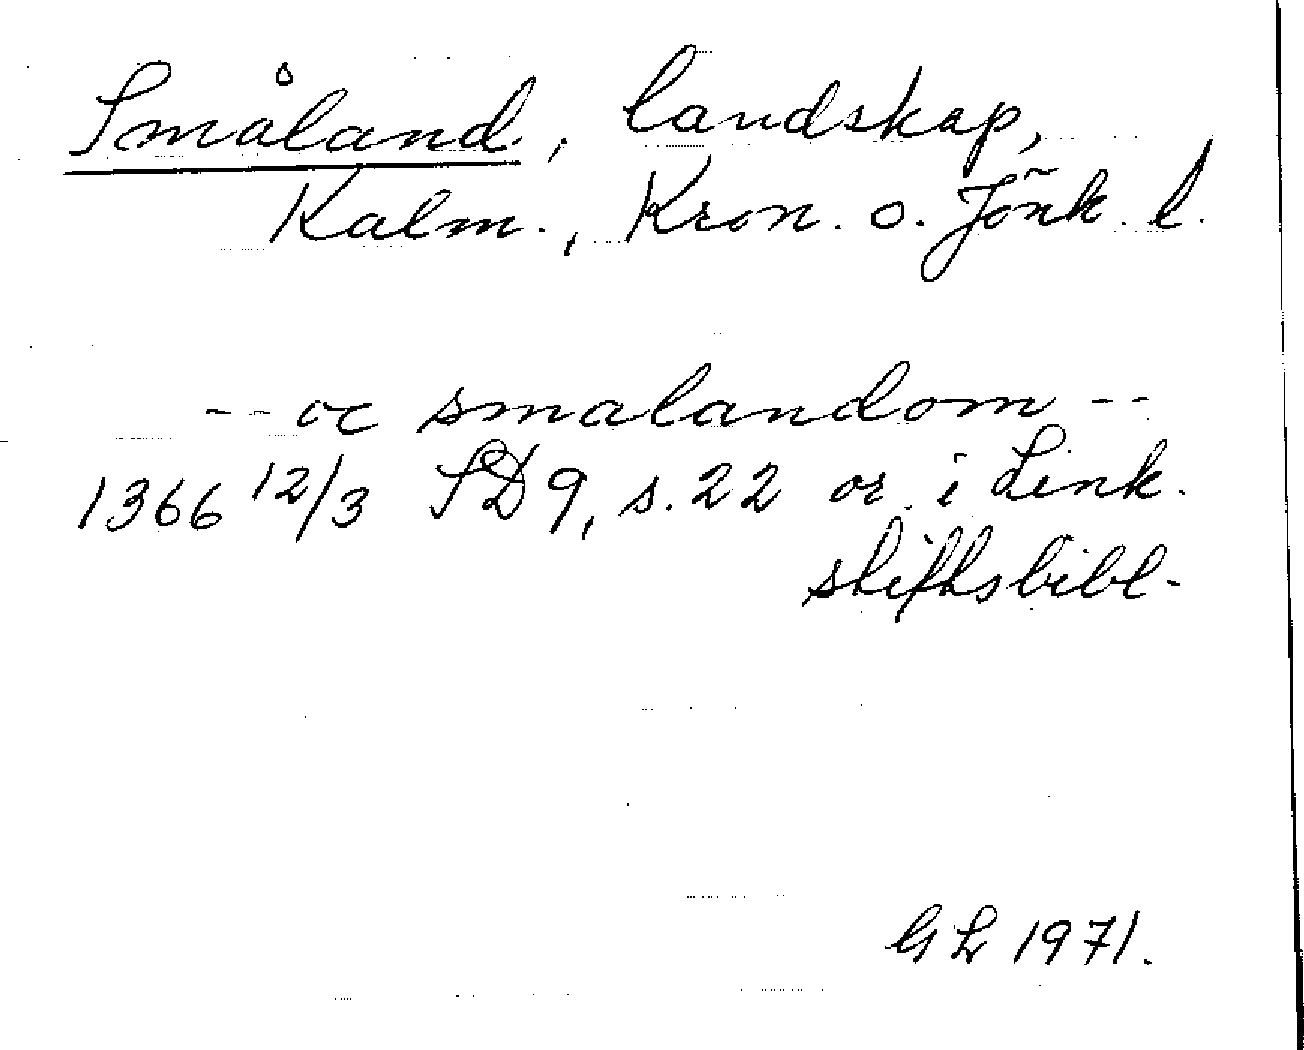 Småland, landskap,
Kalm., Kron. o. Jönk. l.
-- oc smalandom --
1366 12/3 SD 9, s. 22 or. i Link.
stiftsbibl.
GL 1971.